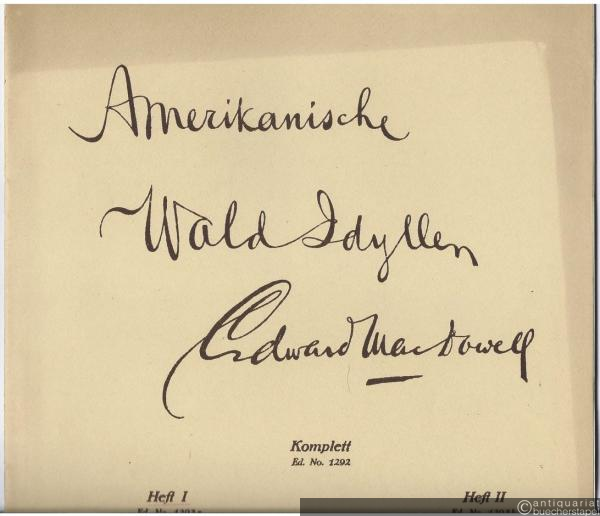 Amerikanische
Wald Idyllen
Edward MacDowell
Komplett
Ed. No. 1292
Heft I
Heft II
Ed. No.
Ed. No.
antiquariat
buecherstapel